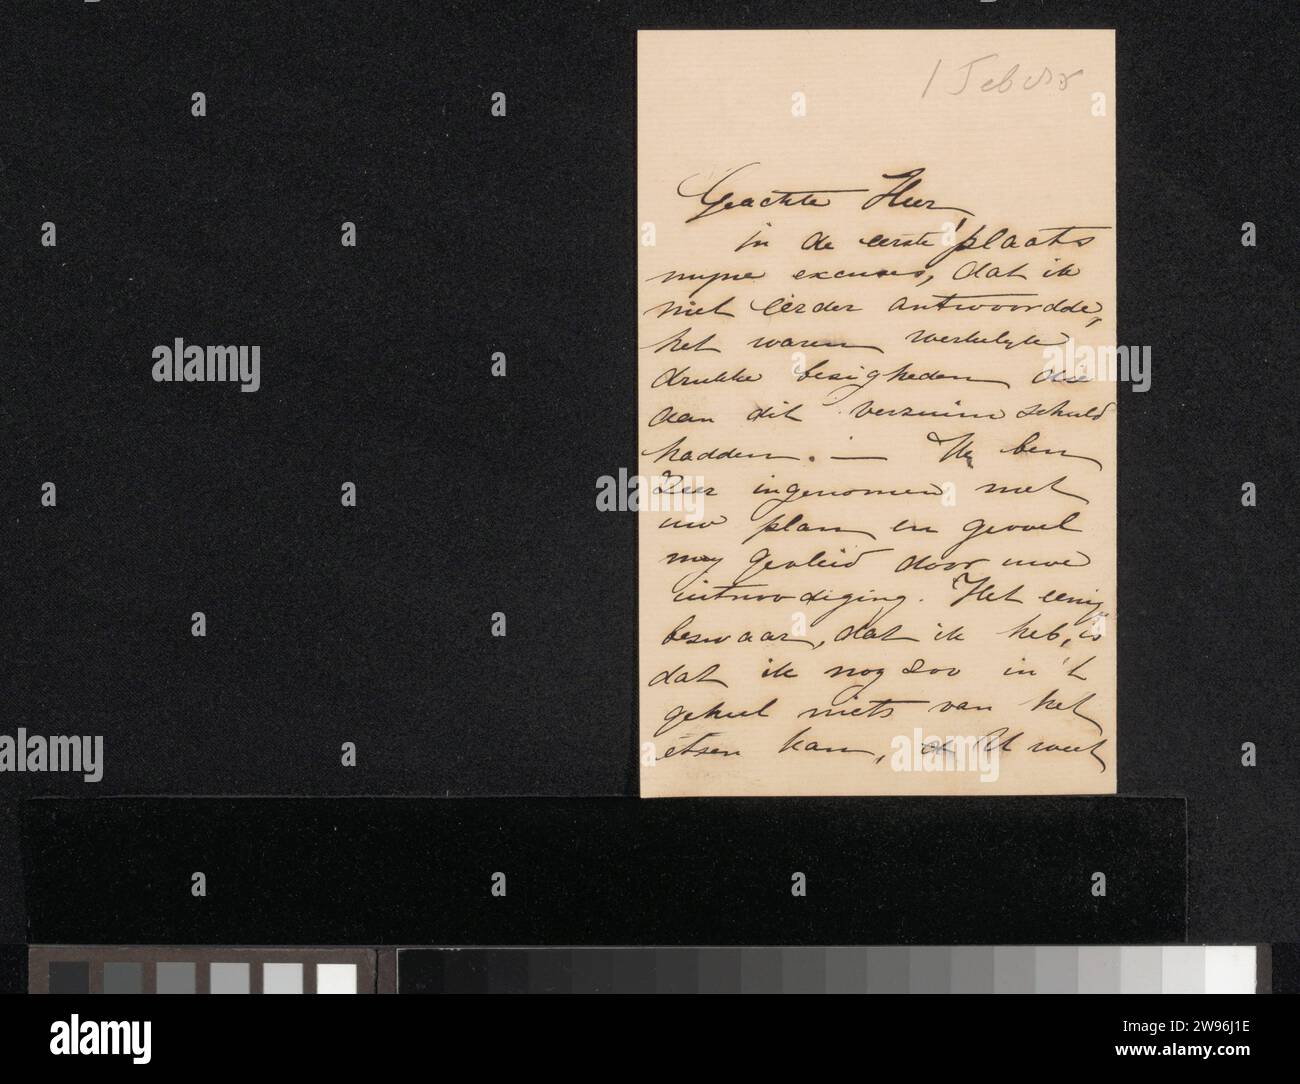 1 Feb
Geachte Heer,
in de eerste plaats
mijne excuses, dat ik
niet eerder antwoordde,
het waren werkelijk
drukke besigheden die
aan dit verzuim schuld
hadden. — Ik ben
Zeer ingenomen met
uw plan en gevoel
mij gevleid door uwe
uitnoodiging. Het eenig
beswaar, dat ik heb, is
dat ik nog zoo in 't
geheel niets van het
etsen kan, U weet
alamy
Image ID: 2W96J1E
www.alamy.com